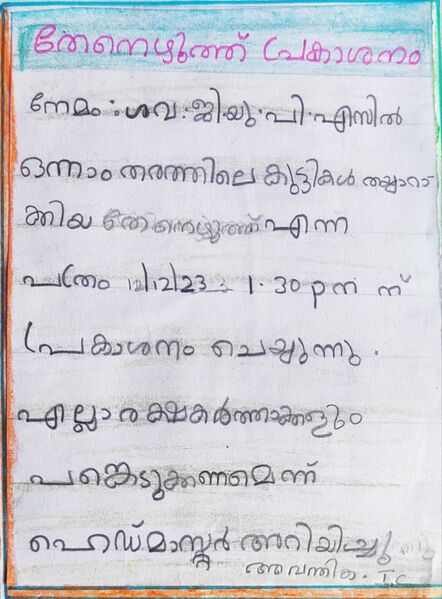 തേനെഴുത്ത് പ്രകാശനം
നേമം : ഗവ : ജി.യു. പി. എസിൽ
ഒന്നാം തരത്തിലെ കുട്ടികൾ തയ്യാറാ
ക്കിയ തേനെഴുത്ത് എന്ന
പത്രം 12/12/23 1.30 pm ന്
പ്രകാശനം ചെയ്യുന്നു .
എല്ലാ രക്ഷകർത്താക്കളും
പങ്കെടുക്കണമെന്ന്
ഹെഡ്മാസ്റ്റർ അറിയിച്ചു
അവന്തിക. T.C